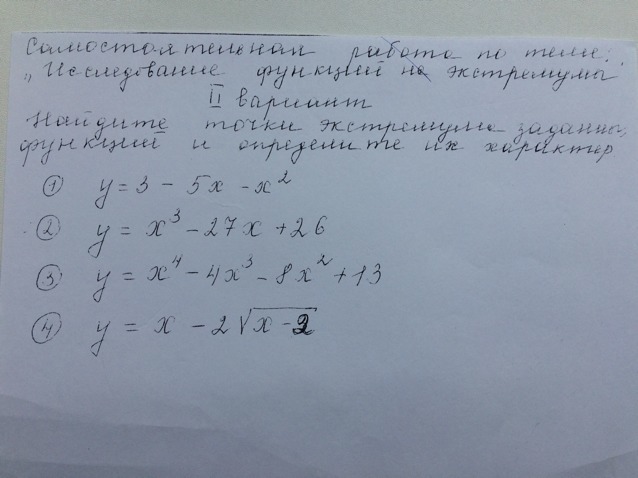 Самостоятельная работа по теме:
"Исследование функций на экстремумы
II вариант
Найдите точки экстремума заданных
функций и определите их характер
① y = 3 - 5x - x²
② y = x³ - 27x + 26
③ y = x⁴ - 4x³ - 8x² + 13
④ y = x - 2√x-2